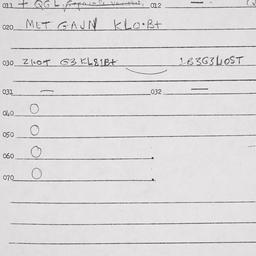 011 + QGL 012 —
020 MET GAJN KLO·B+
030 2KOT G3KL81B+ 1B3G3L10ST
031 — 032 —
040 O
050 O
060 O
070 O